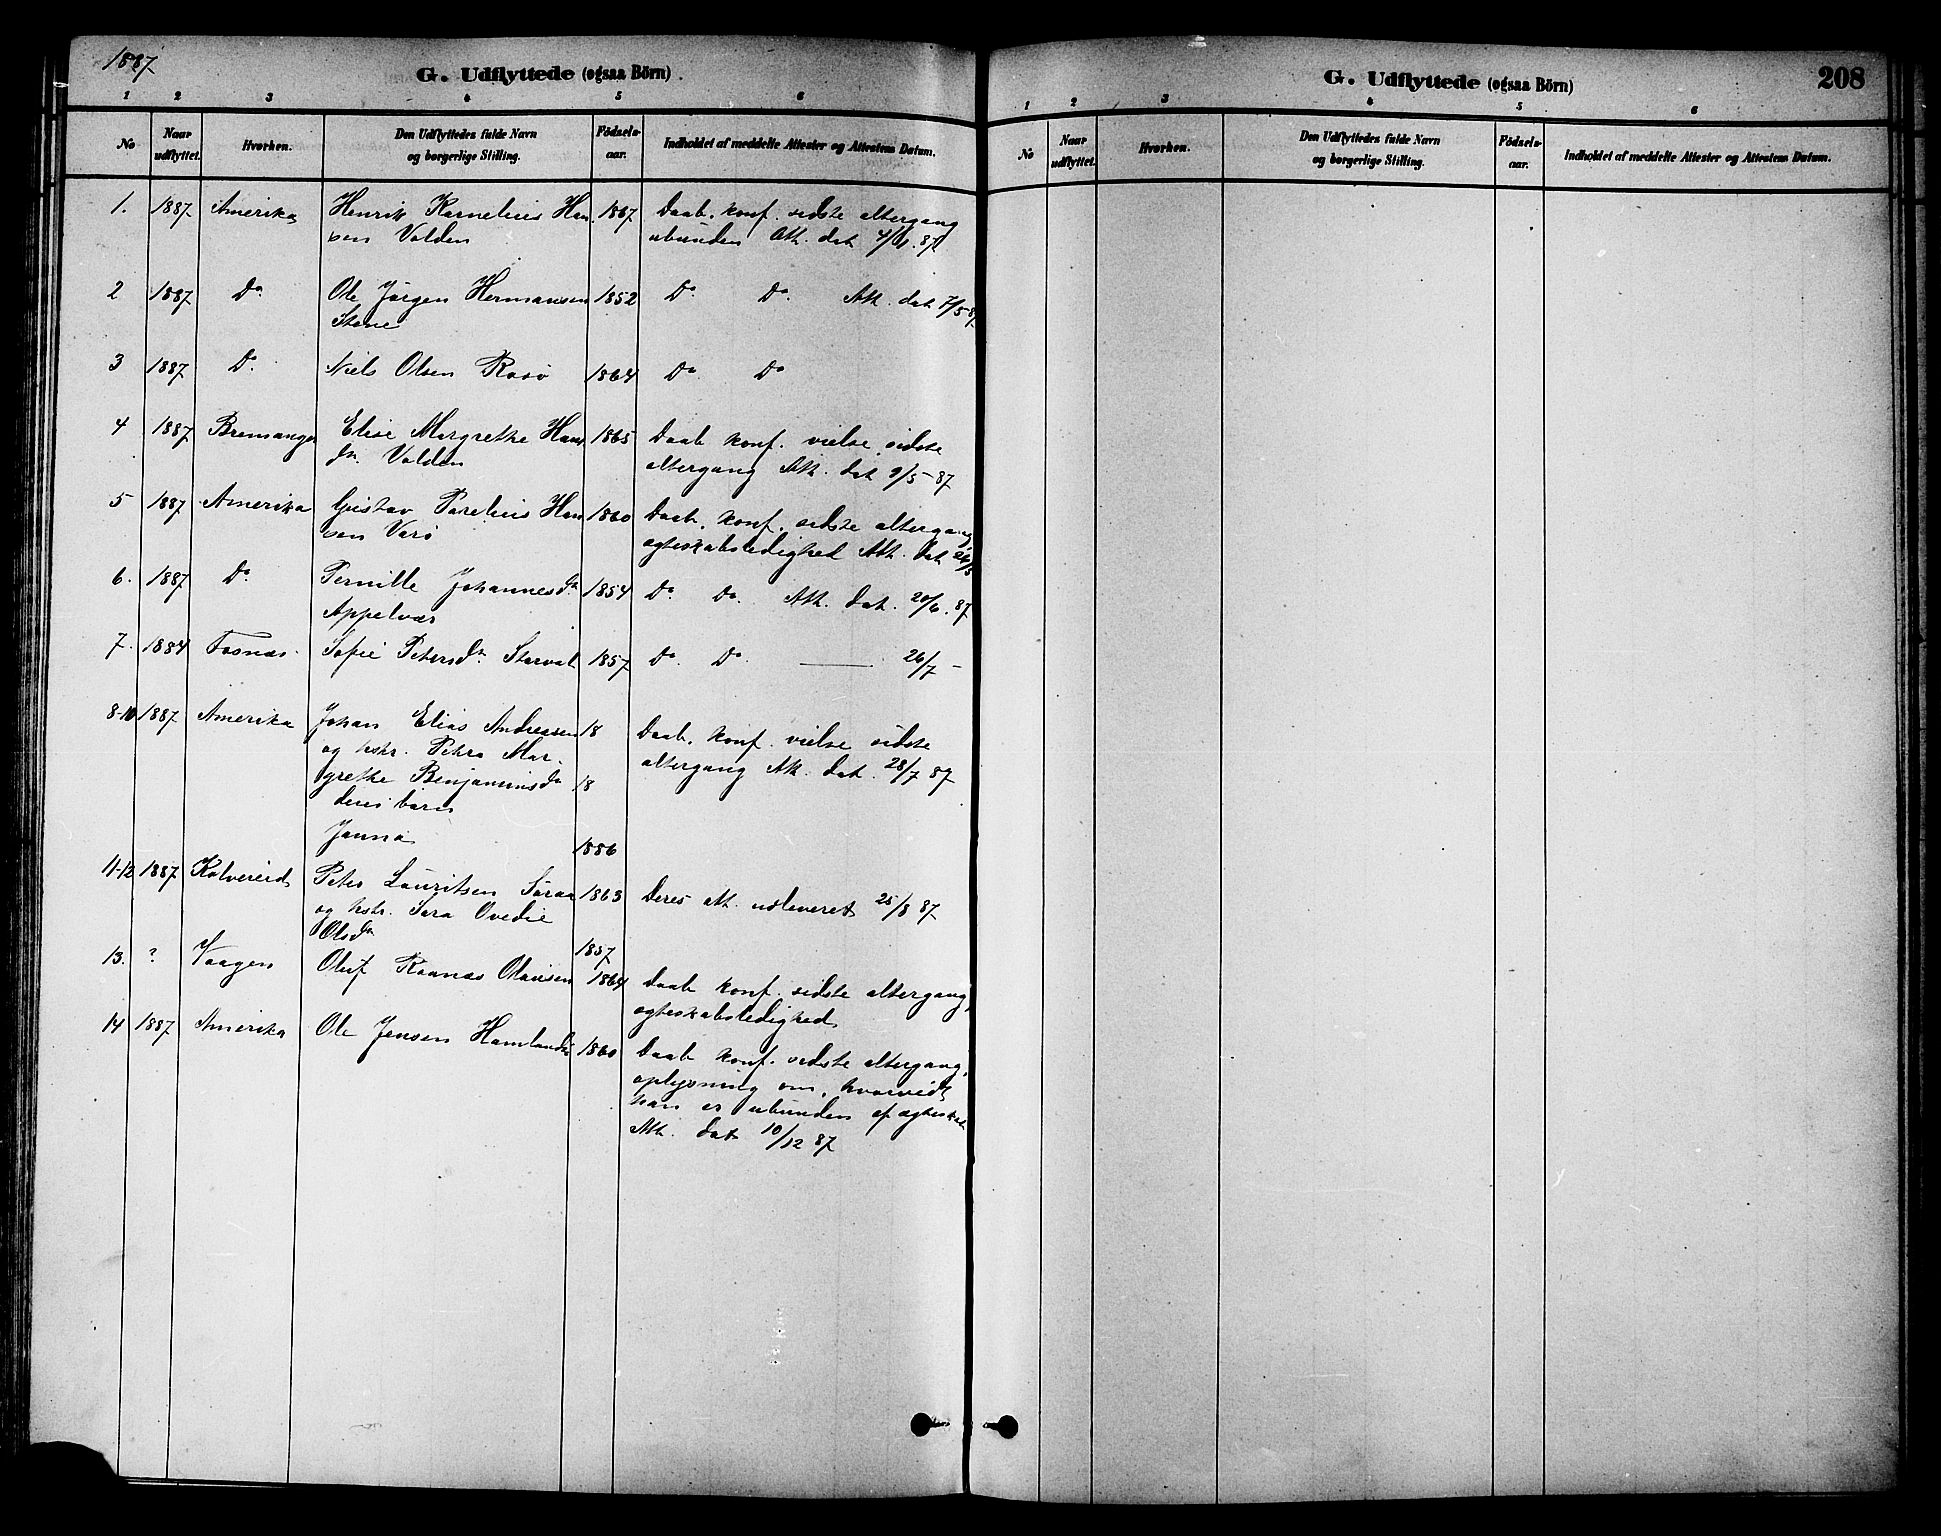 1887
G. Udflyttede (ogsaa Börn)
1 2 3 4 5 6
No Naar udflyttet. Hvorhen. Den Udflyttedes fulde Navn og borgerlige Stilling. Födsels-aar. Indholdet af meddelte Attester og Attestens Datum.
1. 1887 Amerika Henrik Kornelius Han 1867 Daab. konf. sidste altergang
sen Valden ubunden Att. dat 4/4. 87
2 1887 Do Ole Jørgen Hermansen 1852 Do Do Att. dat 7/5 87
Stene
3 1887 Do Niels Olsen Rosø 1864 Do Do
4 1887 Bremanger Elise Margrethe Hans 1865 Daab konf. vielse, sidste
dr. Valden altergang Att. dat 9/5-87
5 1887 Amerika Gustav Parelius Han 1860 Daab. konf. sidste altergang
sen Varø ægteskabsledighed Att. dat 24/5
6. 1887 Do Pernille Johannesdr 1854 Do Do Att. dat. 20/6. 87
Appelvær
7. 1884 Fosnæs Sofie Petersdr. Storval 1857 Do Do — 26/7 –
8-10 1887 Amerika Johan Elias Andreasen 18 Daab. konf. vielse sidste
og hstr. Petra Mar- altergang Att. dat. 28/7 87
grethe Benjaminsdr 18
deres barn
Janna 1886
11-12 1887 Kolvereid Peter Lauritsen Søraa 1863 Deres att. udleveret 25/8 87
og hstr. Sara Ovedie
Olsdr 1857
13. ? Vaagen Oluf Raanæs Olausen 1864 Daab konf. sidste altergang,
ægteskabsledighed
14 1887 Amerika Ole Jensen Hamland 1860 Daab konf. sidste altergang,
oplysning om, hvorvidt
han er ubunden af ægteskab
Att. dat 10/12 87
G. Udflyttede (ogsaa Börn) 208
1 2 3 4 5 6
No Naar udflyttet. Hvorhen. Den Udflyttedes fulde Navn og borgerlige Stilling. Födsels-aar. Indholdet af meddelte Attester og Attestens Datum.